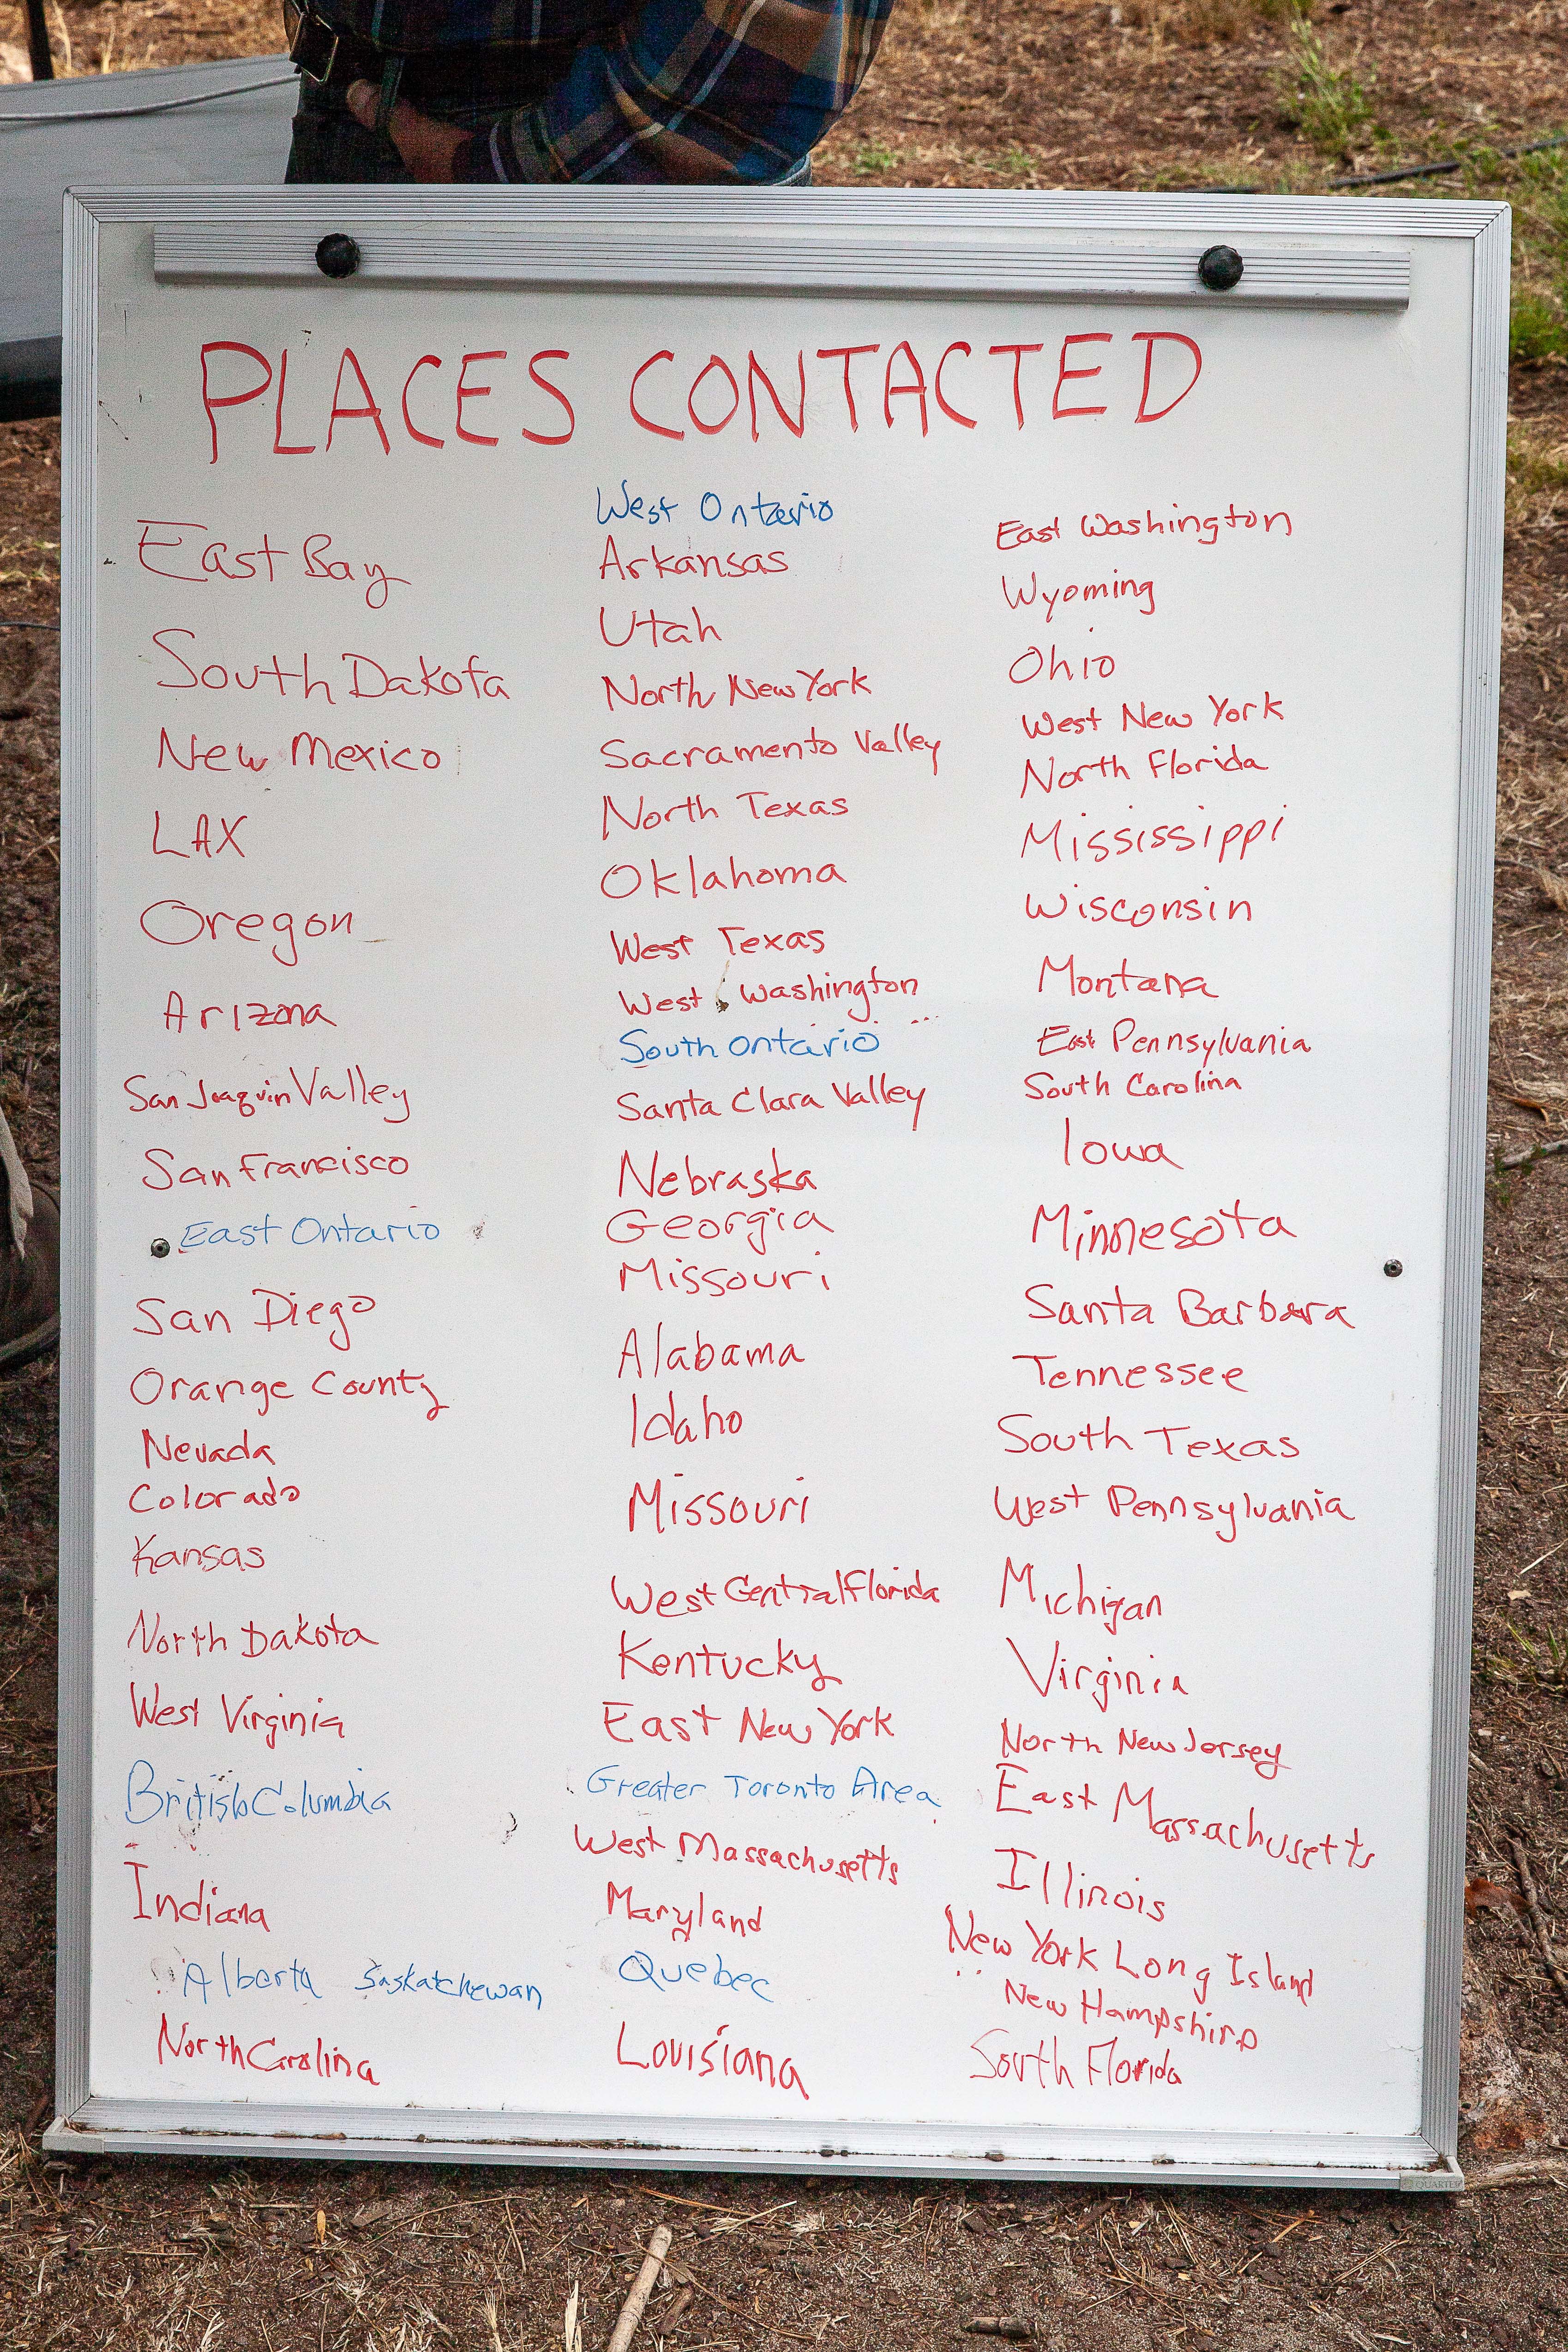 PLACES CONTACTED
East Bay
South Dakota
New Mexico
LAX
Oregon
Arizona
San Joaquin Valley
San Francisco
East Ontario
San Diego
Orange County
Nevada
Colorado
Kansas
North Dakota
West Virginia
British Columbia
Indiana
Alberta Saskatchewan
North Carolina
West Ontario
Arkansas
Utah
North New York
Sacramento Valley
North Texas
Oklahoma
West Texas
West Washington
South Ontario
Santa Clara Valley
Nebraska
Georgia
Missouri
Alabama
Idaho
Missouri
West Central Florida
Kentucky
East New York
Greater Toronto Area
West Massachusetts
Maryland
Quebec
Louisiana
East Washington
Wyoming
Ohio
West New York
North Florida
Mississippi
Wisconsin
Montana
East Pennsylvania
South Carolina
Iowa
Minnesota
Santa Barbara
Tennessee
South Texas
West Pennsylvania
Michigan
Virginia
North New Jersey
East Massachusetts
Illinois
New York Long Island
New Hampshire
South Florida
QUARTET